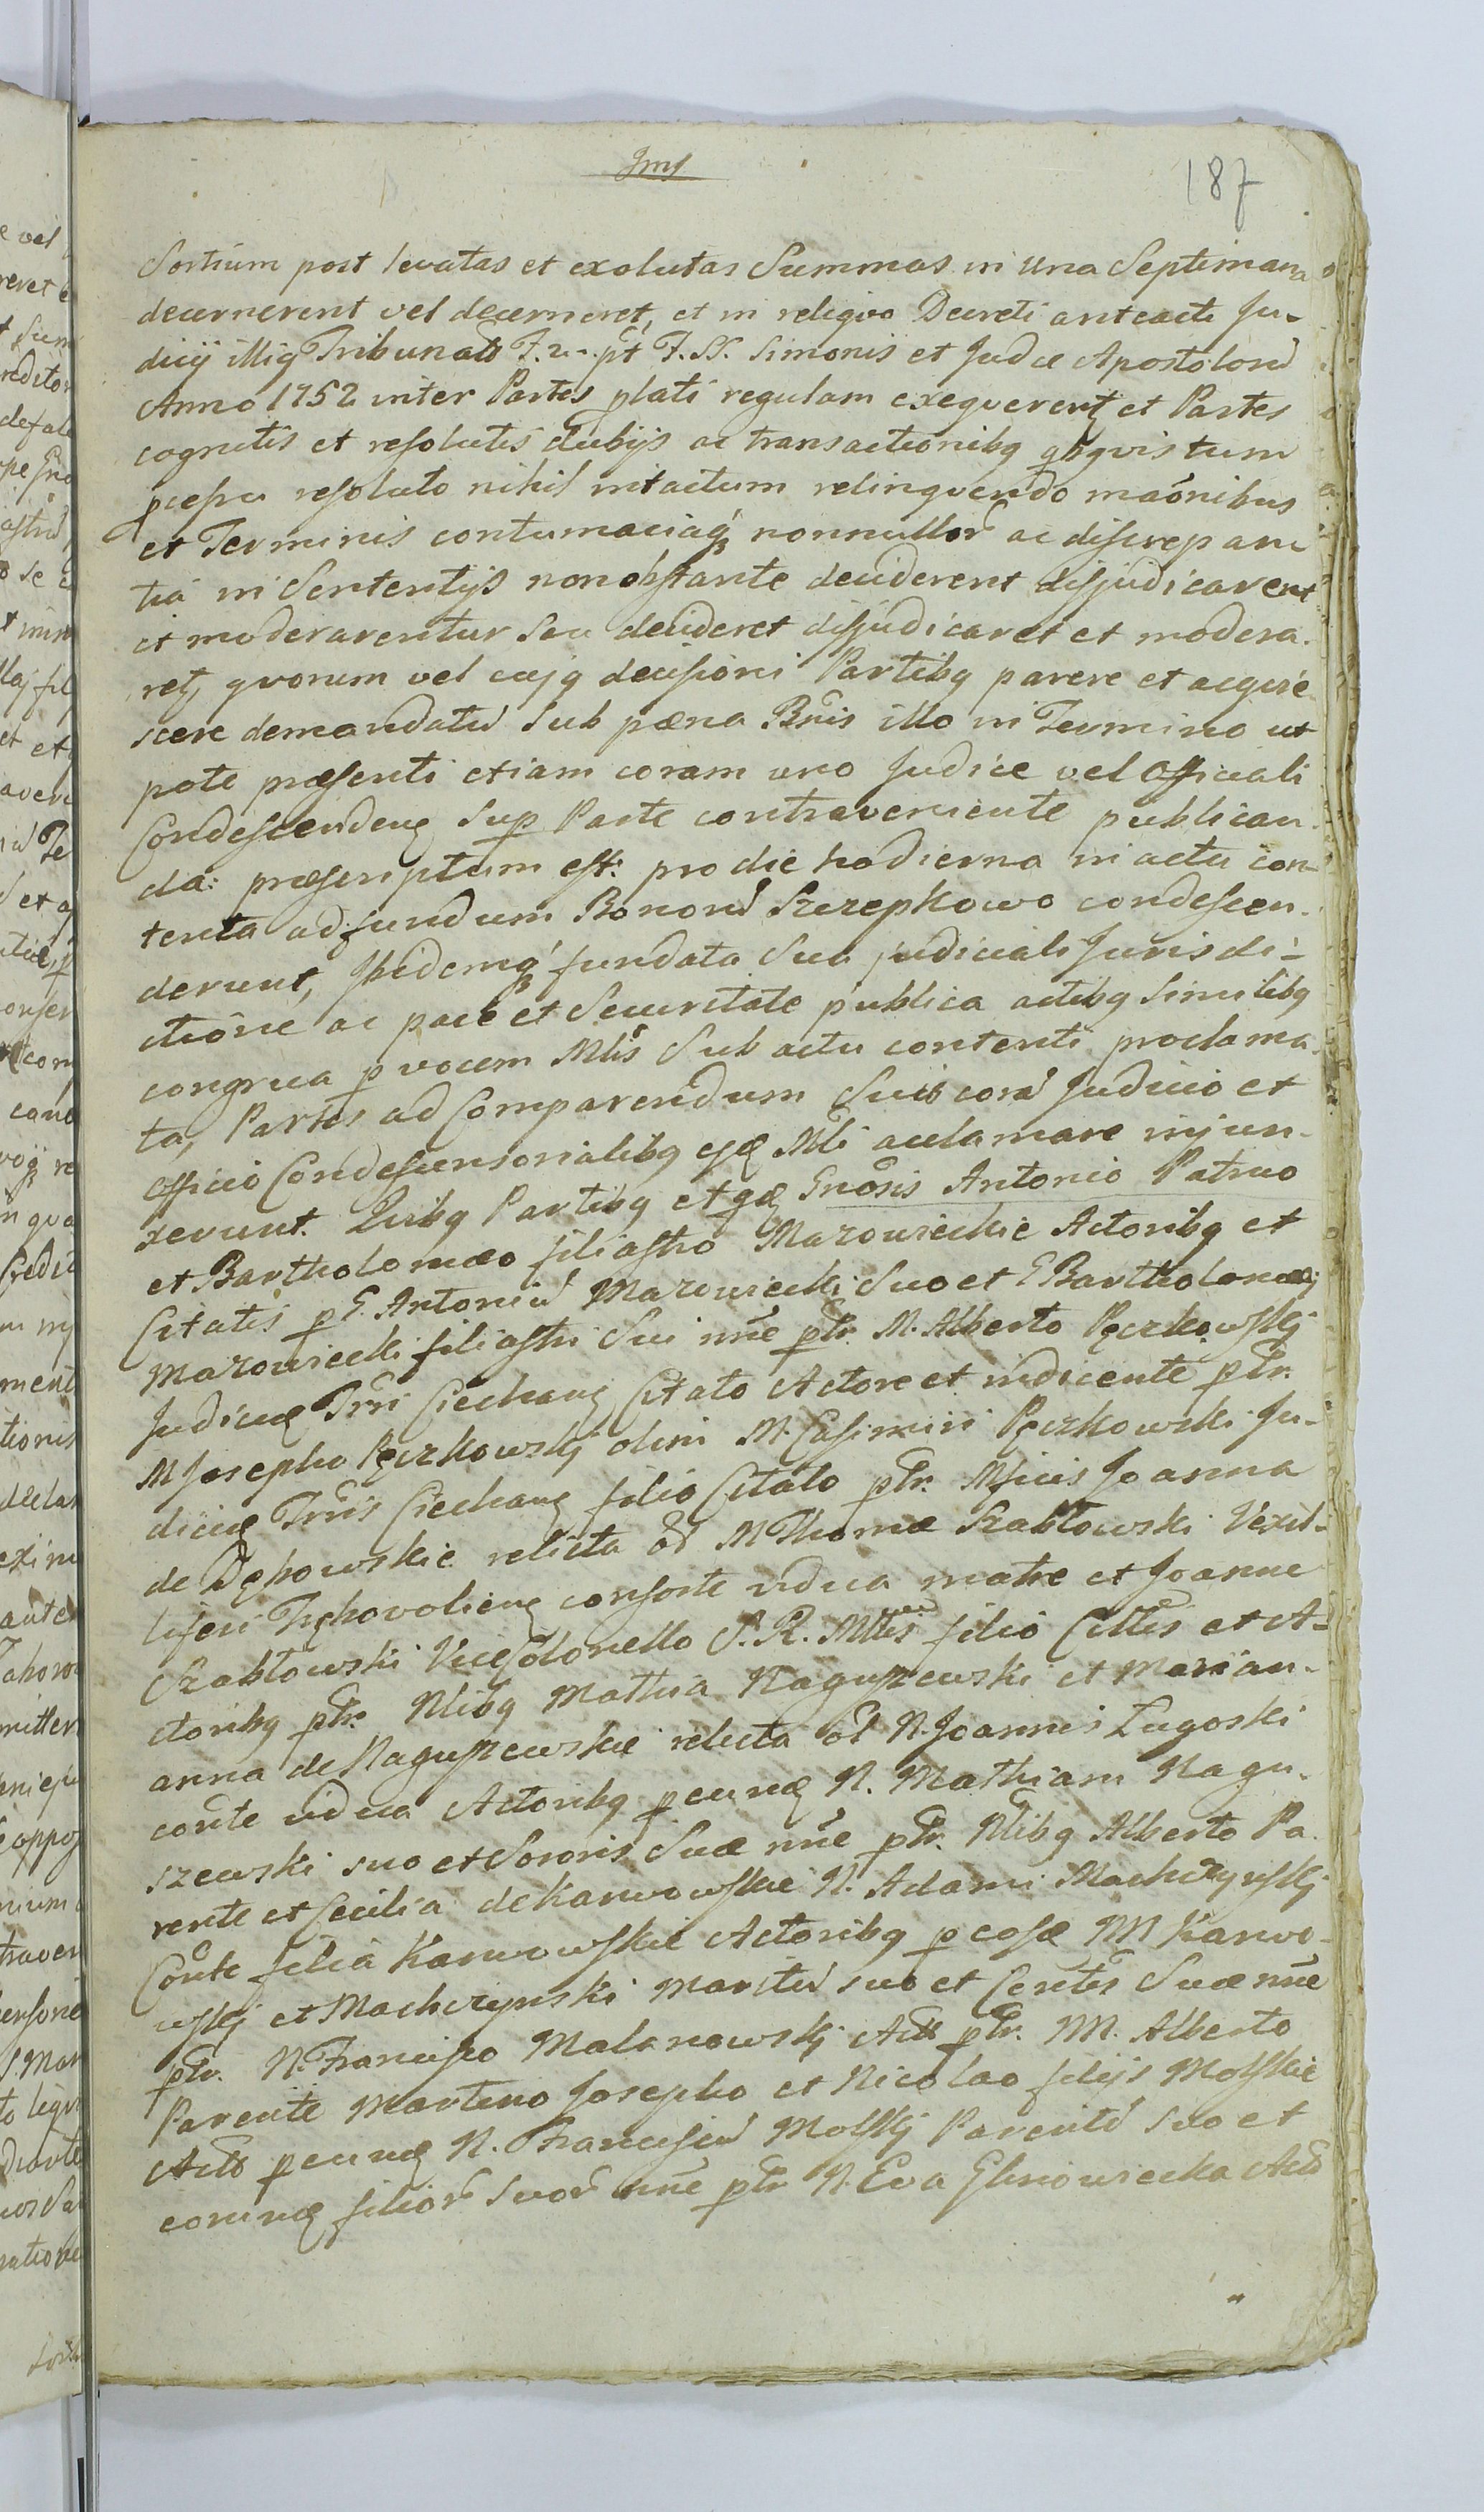 187
Sortium post levatas et exolutas Summas in una Septimana
decernerent vel decerneret, et in reliqvo Decreti anteacti Ju-
dicij illiq Tribunalis F. 2. pt F. SS. Simonis et Judæ Apostolorũ
Anno 1752 inter Partes plati regulam exeqverentʒ et Partes
cognitis et resolutis dubijs ac transactionibq qbqvis tum
resoluto nihil intactum relinqvendo maõnibus
et Terminis contumaciaqʒ nonnullor̃ ac discrepan
tia in Sententijs nonobstante deciderent dijudicarent
et moderarentur Seu decideret dijudicaret et modera-
retʒ qvorum vel cujq decisioni Partibq parere et acqvie
scere demandatũ Sub pæna Bnis illo in Termino ut
pote præsenti etiam coram uno Judice vel Officiali
Condescenden Sup Parte contraveniente publican-
da: præscriptum est: pro die hodierna in actu con-
tenta ad fundum Bonorũ Szczepkowo condescen-
derunt, Ibidemqʒ fundata Sua judiciali Jurisdi-
ctione ac pace et Securitate publica actibq Similibq
congrua p vocem Mlis Sub actu contenti proclama
ta, Partes ad Comparendum Suis corã Judicio et
Officio Condescensorialibq eõæ Mli acclamare injun-
xerunt. Qvibq Partibq et Gnosis Antonio Patruo
et Bartholomæo filiastro Mazowieckie Actoribq et
Citatis p G. Antoniũ Mazowiecki Suo et G Bartholomæi
Mazowiecki filiastri Sui nne ptr. M. Alberto Pęczkowskj
Judice Trri Ciechan Citato Actore et indicente ptr.
M Josepho Pęczkowskj olim M. Casimiri Pęczkowski Ju-
dicis Trris Ciechan filio Citato ptr. Mficis Joanna
de Dęhowskie relicta ol M Thomæ Szabłowski Vexil-
liferi consorte vidua matre et Joanne
Szabłowski ViceColonello S. R. Mttis filio Cittis et A-
ctoribq ptr. Nlibq Mathia Raguszewski et Marian-
anna de Raguszewskie relicta ol N. Joannis Lugoski
conte vidua Actoribq p eun N. Mathiam Ragu-
szewski suo et Sororis Suæ nne ptr. Nlibq Alberto Pa-
rente et Cecilia de Karwowskie N. Adami Machczynskj
Conte filia Karwowskie Actoribq p eosæ NN Karwo-
wskj et Machczynski Maritũ suo et Contis Suæ nne
ptr. N. Francisco Malanowskj Actt ptr. NN. Alberto
Parente Martino Josepho et Nicolao filijs Molskie
Actb p eun N. Franciscũ Molskj Parentẽ suo et
eorun filior̃ Suor̃ nne ptr N. Eva Glinowiecka Actt